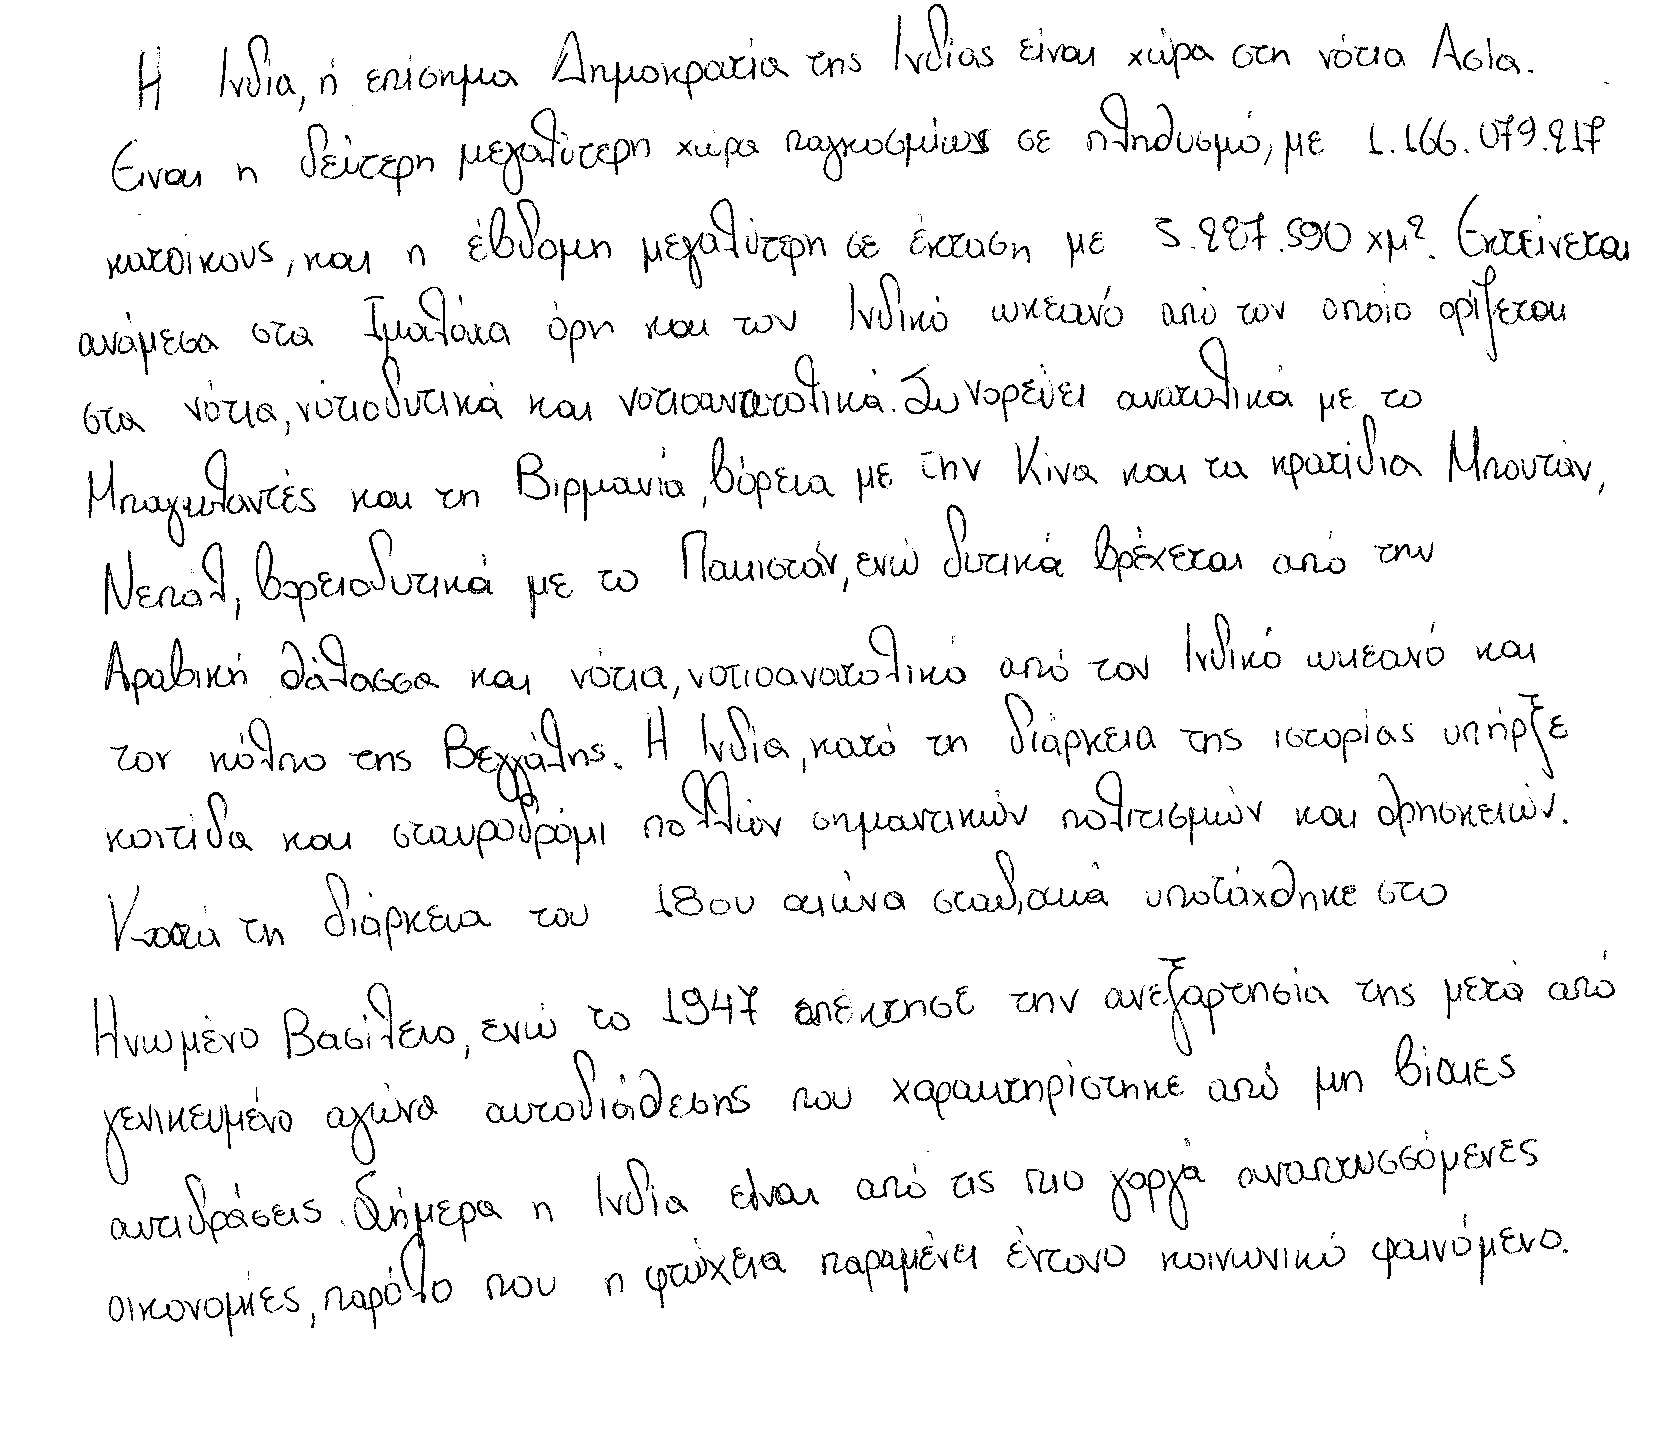 Η Ινδία, ή επίσημα Δημοκρατία της Ινδίας είναι χώρα στη νότια Ασία.
Είναι η δεύτερη μεγαλύτερη χώρα παγκοσμίως σε πληθυσμό, με 1.166.079.217
κατοίκους, και η έβδομη μεγαλύτερη σε έκταση με 3.287.590 χμ². Εκτείνεται
ανάμεσα στα Ιμαλάια όρη και τον Ινδικό ωκεανό από τον οποίο ορίζεται
στα νότια, νότιοδυτικά και νοτιοανατολικά. Συνορεύει ανατολικά με το
Μπαγκλαντές και τη Βιρμανία, βόρεια με την Κίνα και τα κρατίδια Μπουτάν,
Νεπάλ, βορειοδυτικά με το Πακιστάν, ενώ δυτικά βρέχεται από την
Αραβική θάλασσα και νότια, νοτιοανατολικά από τον Ινδικό ωκεανό και
τον κόλπο της Βεγγάλης. Η Ινδία, κατά τη διάρκεια της ιστορίας υπήρξε
κοιτίδα και σταυροδρόμι πολλών σημαντικών πολιτισμών και θρησκειών.
Κατά τη διάρκεια του 18ου αιώνα σταδιακά υποτάχθηκε στο
Ηνωμένο Βασίλειο, ενώ το 1947 απέκτησε την ανεξαρτησία της μετά από
γενικευμένο αγώνα αυτοδιάθεσης που χαρακτηρίστηκε από μη βίαιες
αντιδράσεις. Σήμερα η Ινδία είναι από τις πιο γοργά αναπτυσσόμενες
οικονομίες, παρόλο που η φτώχεια παραμένει έντονο κοινωνικό φαινόμενο.